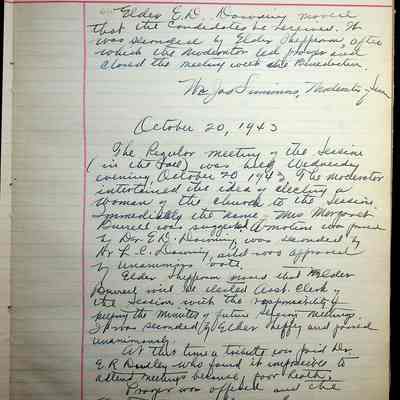 Elder E.D. Downing moved
that the candidates be received. It
was seconded by Elder Shepperson, after
which the Moderator led prayer and
closed the meeting with the Benediction
Wm Jas Simmons, Moderator of Session
October 20, 1943
The Regular meeting of the Session
(in the fall) was held Wednesday
evening October 20 1943. The moderator
intertained the idea of electing a
woman of the church to the Session.
Immediately the name, Mrs Margaret
Burrell was suggested. A motion was
by Dr. E.D. Downing, was seconded by
Dr L.C. Downing, and was approved
by unanimous vote.
Elder Shepperson moved that Elder
Burrell will be elected Asst. Clerk of
the Session with the responsibility of
keeping the minutes of future session meetings.
It was seconded by Elder and passed
unanimously.
At this time a tribute was paid Dr.
E R Dudley who found it impossible to
attend meetings because, poor health.
Prayer was offered and the